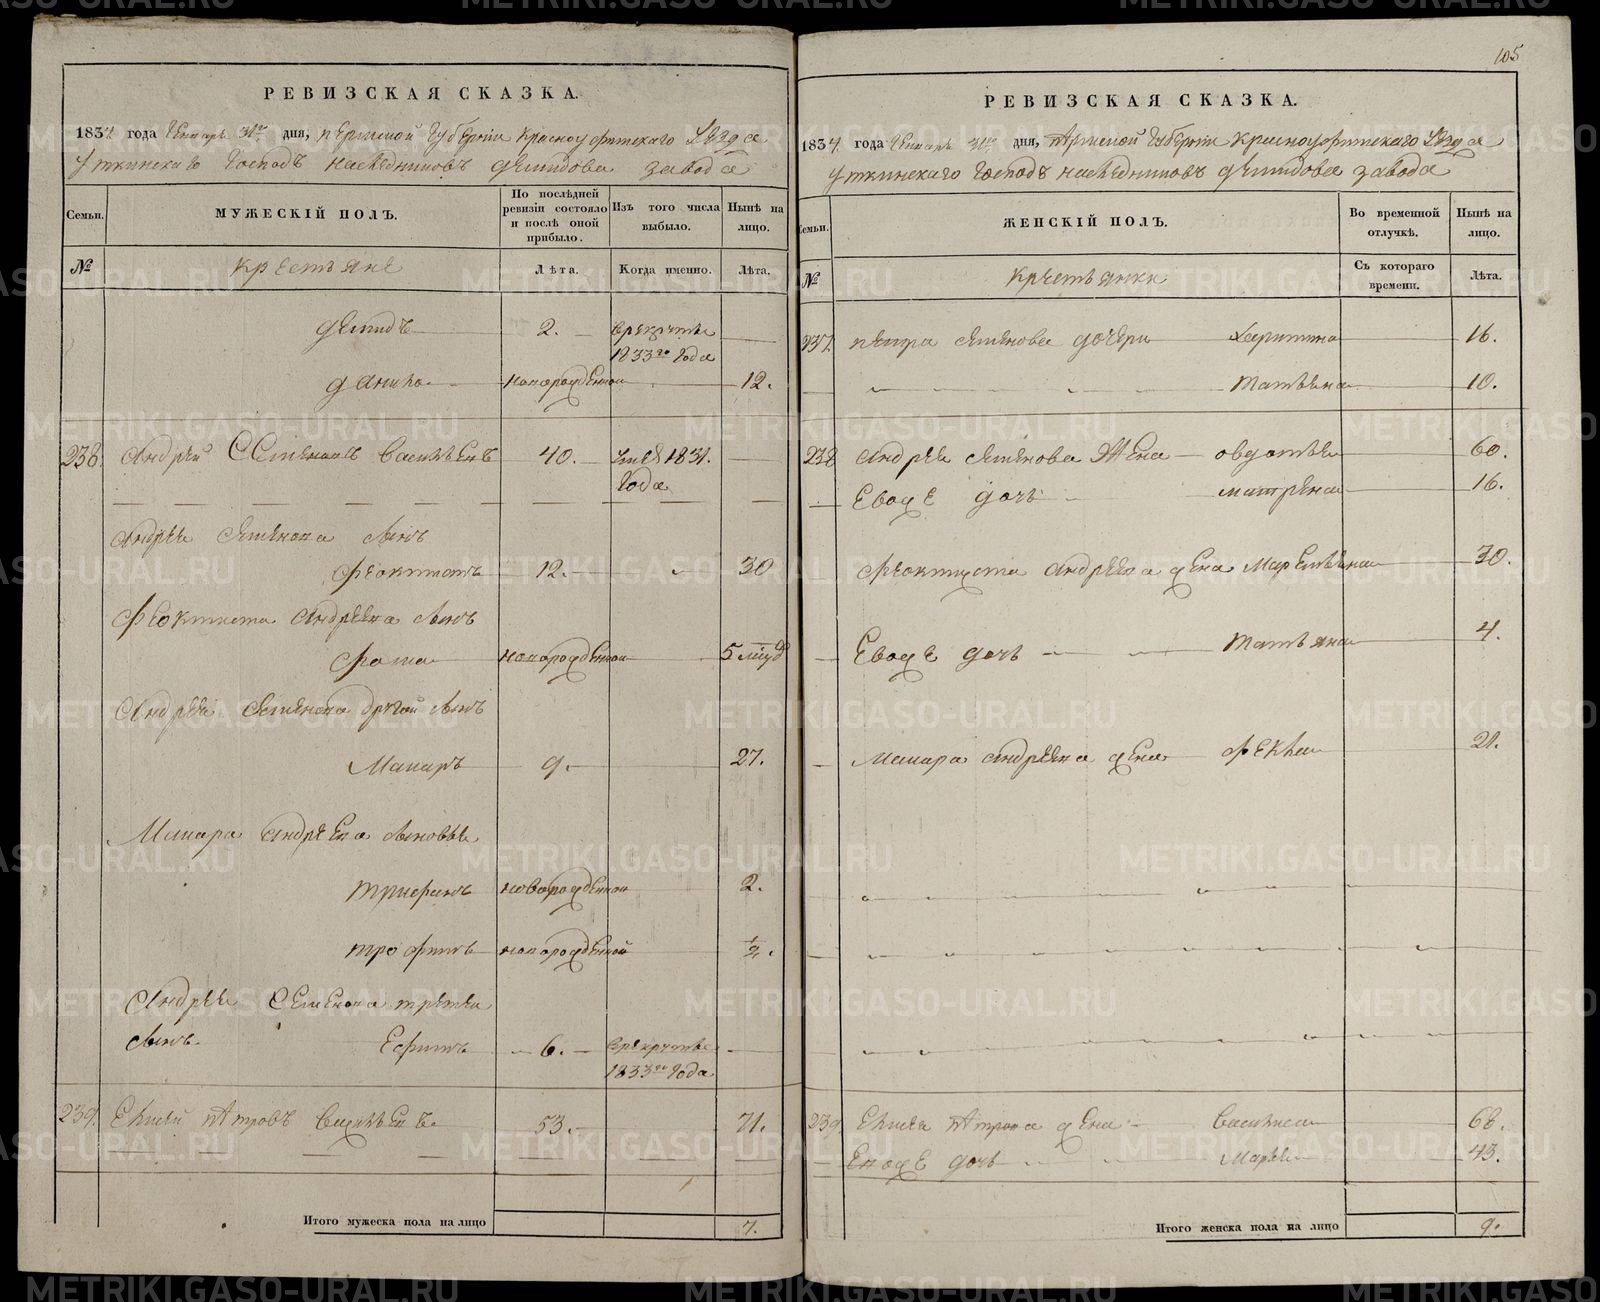 105
РЕВИЗСКАЯ СКАЗКА.
1834 года Генваря 31го дня, Пермской Губерніи Красноуфимскаго Уезда
Уткинскаго Господъ наследниковъ Демидова завода
Семьи.
МУЖЕСКІЙ ПОЛЪ.
По послѣдней ревизіи состояло и послѣ оной прибыло.
Изъ того числа выбыло.
Нынѣ на лицо.
№
Крестьяне
Лѣта.
Когда именно.
Лѣта.
Демидъ 2. в рекруты
1833го Года
Данило новорожденной 12.
238. Андрей Семеновъ Васильевъ 40. 1831.
Года
Андрея Семенова сынъ
Феоктистъ 12. 30
Феоктиста Андреева сынъ
Фома новорожденной 5
Андрея Семенова другой сынъ
Макаръ 9. 27.
Макара Андреева сыновья
Трифанъ новорожденной 2.
Трофимъ новорожденной 1/2.
Андрея Семенова третей
сынъ Ефимъ 6. в рекруты
1833го Года
239. Елисей Петровъ Васильевъ 53. 71.
Итого мужеска пола на лицо 7.
РЕВИЗСКАЯ СКАЗКА.
1834 года Генваря 31го дня, Пермской Губерніи Красноуфимскаго Уезда
Уткинскаго Господъ наследниковъ Демидова завода
Семьи.
ЖЕНСКІЙ ПОЛЪ.
Во временной отлучкѣ.
Нынѣ на лицо.
№
Крестьянки
Съ котораго времени.
Лѣта.
237. Петра Семенова дочери Харитина 16.
Татьяна 10.
238 Андрея Семенова Жена Овдотья 60.
Евоже дочь Матрена 16.
Феоктиста Андреева жена Маремьяна 30.
Евоже дочь Татьяна 4.
Макара Андреева жена Фекла 21.
239. Елисея Петрова жена Василиса 68.
Евоже дочь Марья 43.
Итого женска пола на лицо 9.
METRIKI.GASO-URAL.RU